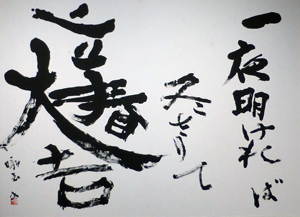 一夜明ければ
冬さりて
立春
大吉